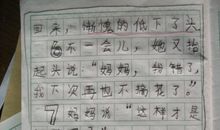 回来，惭愧的低下了头
不一会儿，她又抬
起头说：“妈妈，我错了，
我下次再也不摘花了”
妈妈说“这样才是